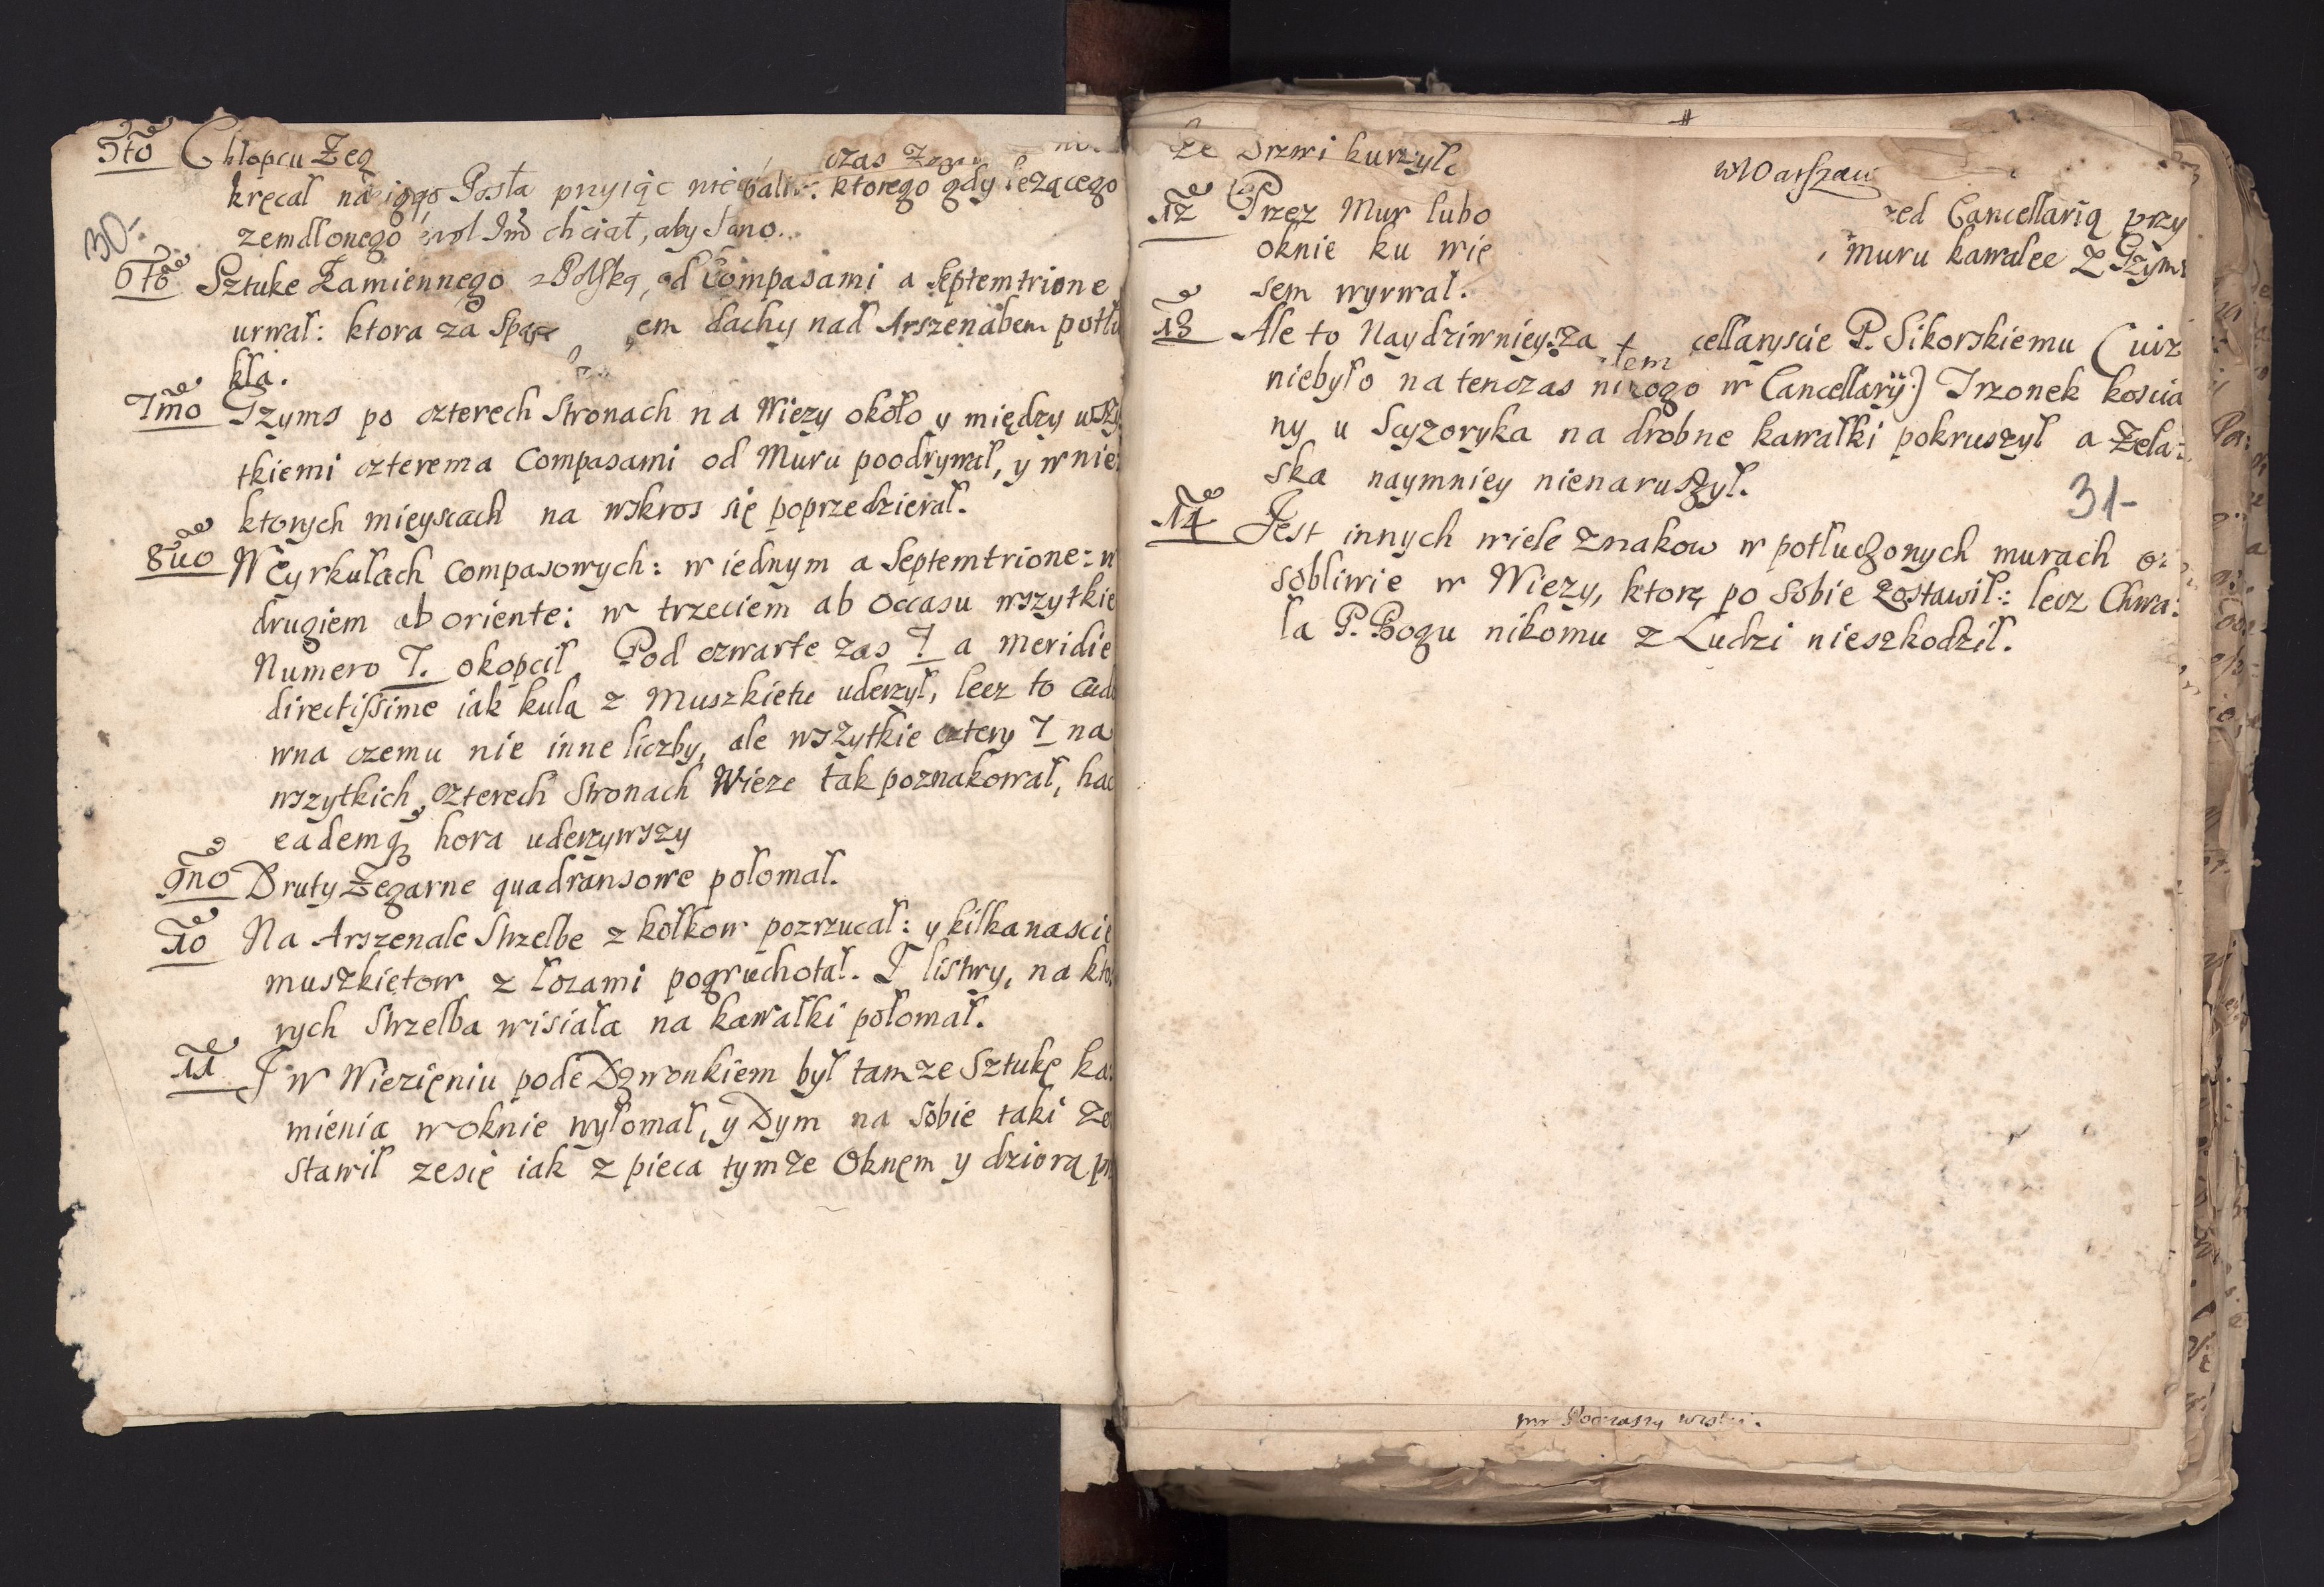 5to Chłopcu Zeg czas
kręcał na Posła przyiąc nie ktorego gdy lezącego
zemdlonego chciał, aby
30-
6to Sztuke Kamiennego od Compasami a Septemtrione
urwał: ktora za Spad em dachy nad Arszenałem potłu
kła.
7mo Gzyms po czterech Stronach na Wiezy około y między wszy
tkiemi czterema Compasami od Muru poodrywał, y w nie:
ktorych mieyscach na wskros się poprzedzierał.
8uo W Cyrkułach Compasowych: w iednym a Septemtrione: w
drugiem ab oriente: w trzeciem ab occasu wszytkie
Numero 7. okopcił Pod czwarte zas 7 a meridie
directissime iak kula z Muszkietu uderzył, lecz to cud
wna czemu nie inne liczby, ale wszytkie cztery 7 na
wszytkich czterech Stronach Wieze tak poznakował, hac
eademq hora uderzywszy
9no Druty Zegarne quadransowe połomał.
10 Na Arszenale Strzelbe z kołkow pozrzucał: y kilkanascie
muszkietow z Łozami pogruchotał. I listwy, na kto
rych Strzelba wisiała na kawałki połomał.
11 I w Wiezięniu pode Dzwonkiem był tamze Sztukę ka:
mienia w oknie wyłomał, y Dym na sobie taki zo
stawił zesię iak z pieca tymze Oknęm y dziorą
ze Drzwi kurzyło
w Warszaw
12 Przez Mur lubo zed Cancellarią przy
oknie ku wie muru kawalec z Gzym
sem wyrwał.
13 Ale to Naydziwnieysza cellaryscie P. Sikorskiemu (iuz
niebyło na tenczas nikogo w Cancellaryi) Trzonek koscia
ny u Scyzoryka na drobne kawałki pokruszył a Zela:
ska naymniey nienaruszył.
31-
14 Jest innych wiele znakow w potłuczonych murach o:
sobliwie w Wiezy, ktorę po sobie zostawił: lecz Chwa:
ła P. Bogu nikomu z Ludzi nieszkodził.